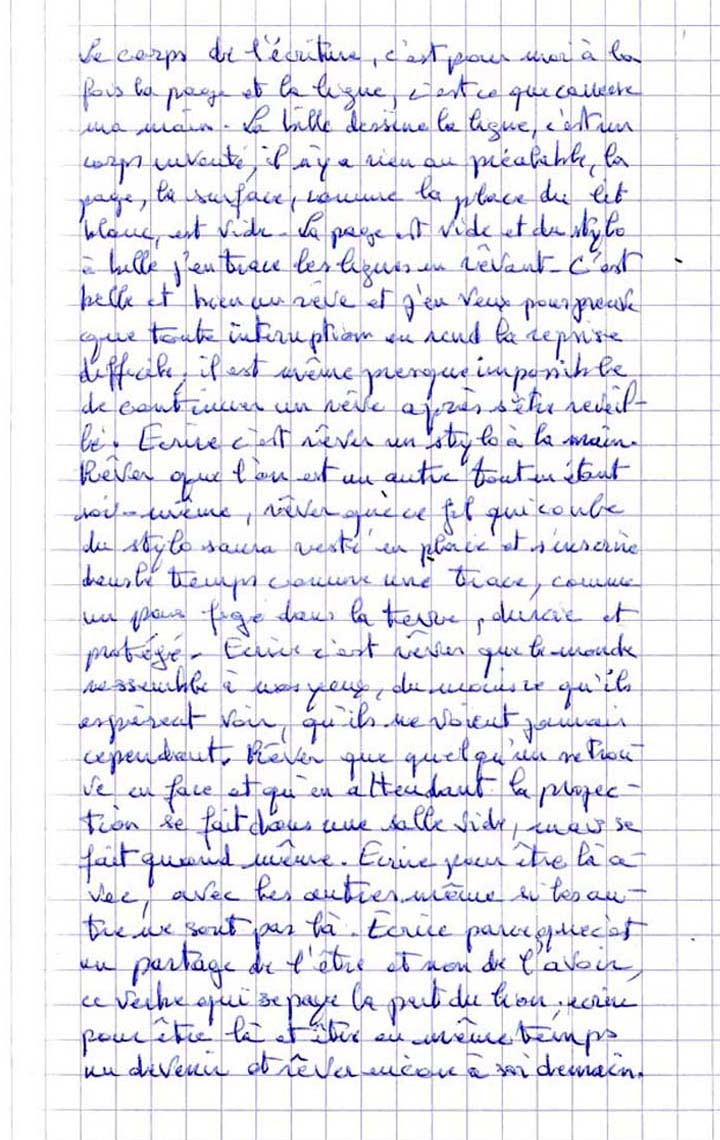 Le corps de l'écriture, c'est pour moi à la
fois la page et la ligne, c'est ce que caresse
ma main. La bille dessine la ligne, c'est un
corps inventé, il n'y a rien au préalable, la
page, la surface, comme la place du lit
blanc, est vide. La page est vide et du stylo
à bille j'en trace les lignes en rêvant. C'est
belle et bien un rêve et j'en veux pour preuve
que toute interruption en rend la reprise
difficile, il est même presque impossible
de continuer un rêve après s'être réveil-
lé. Ecrire c'est rêver un stylo à la main.
Rêver que l'on est un autre tout en étant
soi-même, rêver que ce fil qui coule
du stylo saura resté en place et s'inscrire
dans le temps comme une trace, comme
un pas figé dans la terre, durcie et
protégé. Ecrire c'est rêver que le monde
ressemble à nos yeux, du moins ce qu'ils
espèrent voir, qu'ils ne voient jamais
cependant. Rêver que quelqu'un se trou-
ve en face et qu'en attendant la projec-
tion se fait dans une salle vide, mais se
fait quand même. Ecrire pour être là a-
vec, avec les autres même si les au-
tre ne sont pas là. Ecrire parce que c'est
un partage de l'être et non de l'avoir,
ce verbe qui se paye la part du lion, écrire
pour être là et être en même temps
un devenir et rêver encore à soi demain.